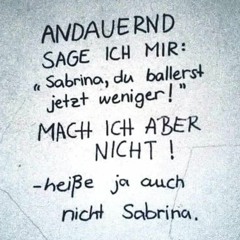 ANDAUERND
SAGE ICH MIR:
"Sabrina, du ballerst
jetzt weniger!"
MACH ICH ABER
NICHT!
-heiße ja auch
nicht Sabrina.